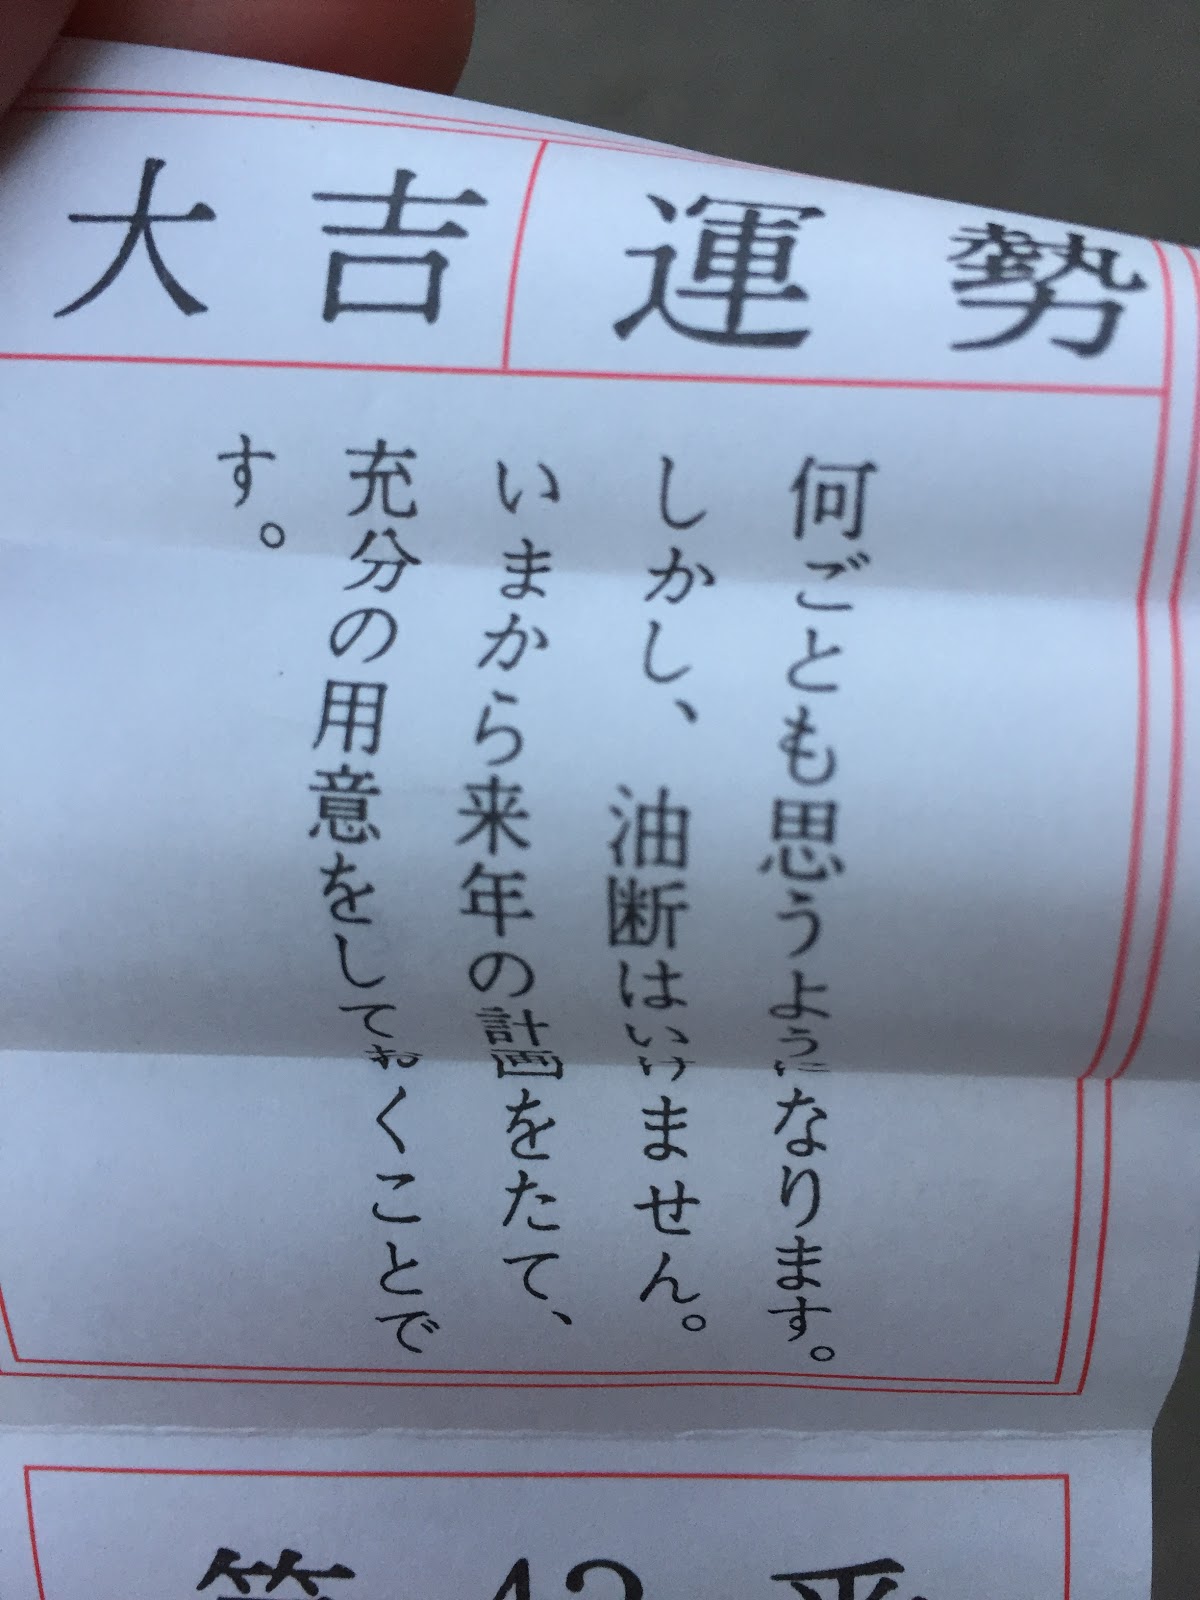 大吉 運勢
何ごとも思うようになります。
しかし、油断はいけません。
いまから来年の計画をたて、
充分の用意をしておくことで
す。
第 42 番